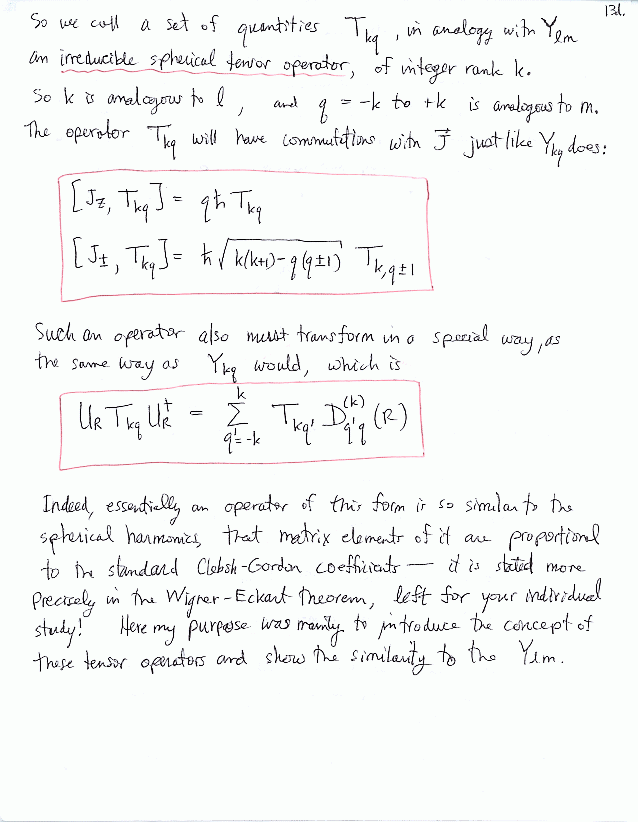 131.
So we call a set of quantities T_kq , in analogy with Y_lm
an irreducible spherical tensor operator, of integer rank k.
So k is analogous to l , and q = -k to +k is analogous to m.
The operator T_kq will have commutations with J⃗ just like Y_kq does:
[J_z, T_kq] = qħ T_kq
[J_±, T_kq] = ħ √(k(k+1)-q(q±1)) T_k,q±1
Such an operator also must transform in a special way, as
the same way as Y_kq would, which is
U_R T_kq U_R† = Σ_{q'=-k}^{k} T_kq' D_{q'q}^{(k)} (R)
Indeed, essentially an operator of this form is so similar to the
spherical harmonics, that matrix elements of it are proportional
to the standard Clebsh-Gordon coefficients — it is stated more
precisely in the Wigner-Eckart theorem, left for your individual
study! Here my purpose was mainly to introduce the concept of
these tensor operators and show the similarity to the Y_lm.